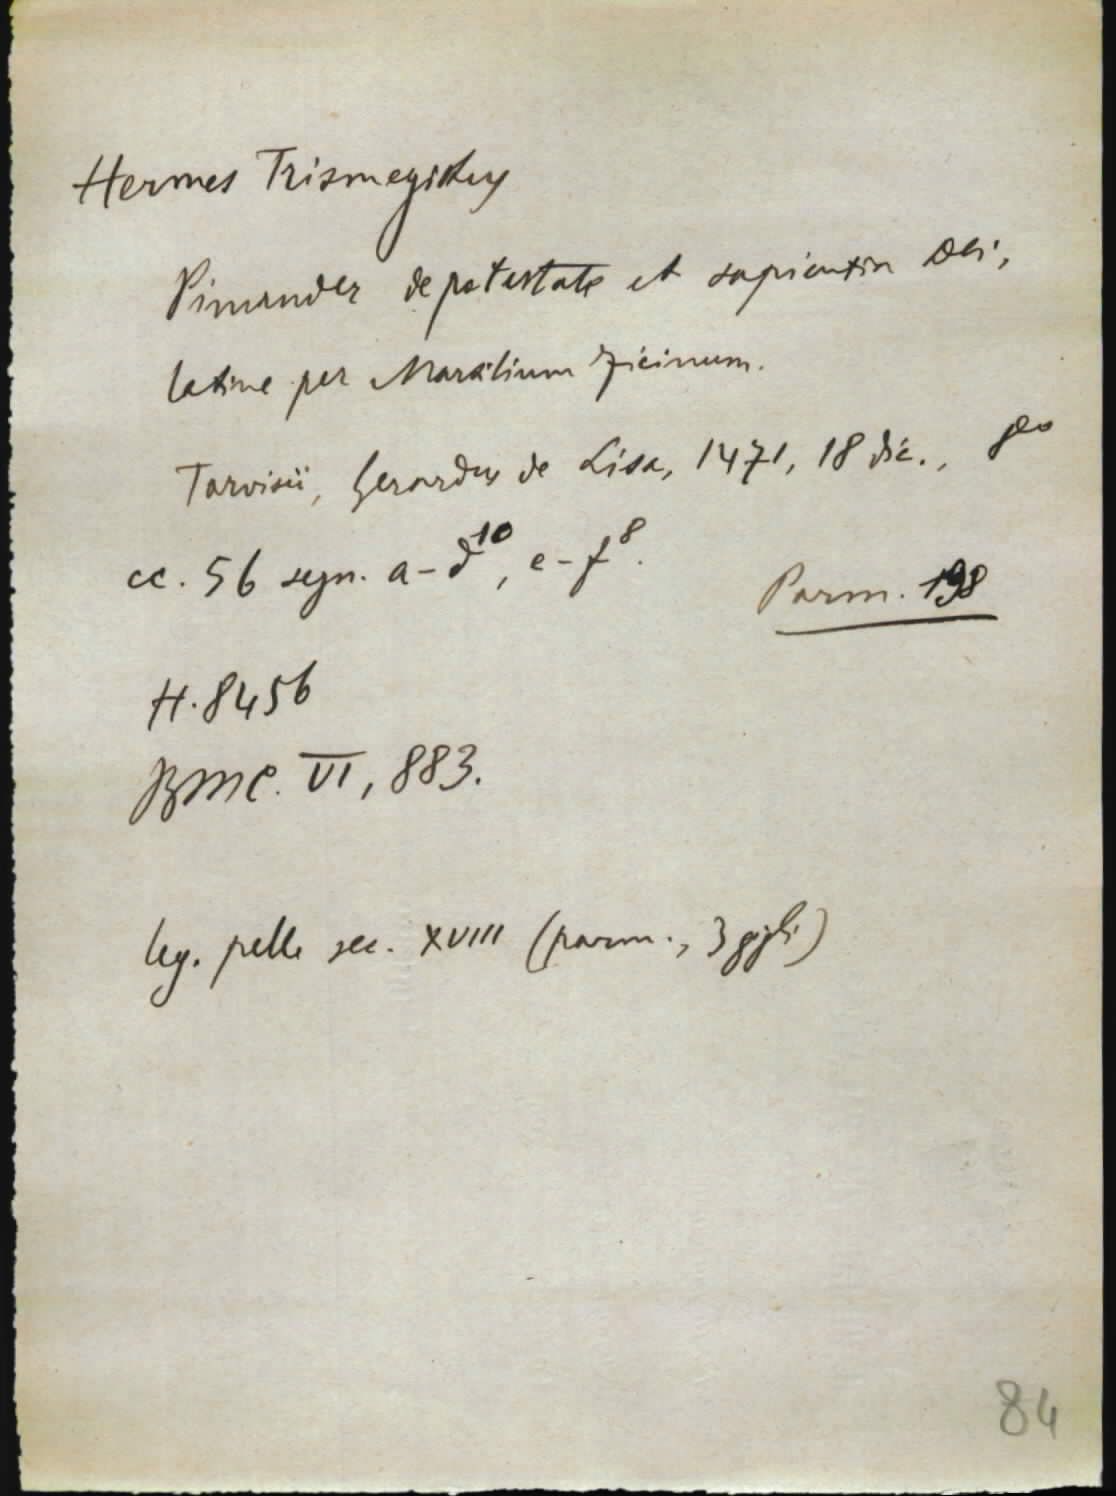 Hermes Trismegistus
Pimander de potestate et sapientia Dei,
latine per Marsilium Ficinum.
Tarvisii, Gerardus de Lisa, 1471, 18 dic., 8º
cc. 56 segn. a-d¹⁰, e-f⁸.
Parm. 198
H. 8456
BMC. VI, 883.
leg. pelle sec. XVIII (parm., 3 gigli)
84